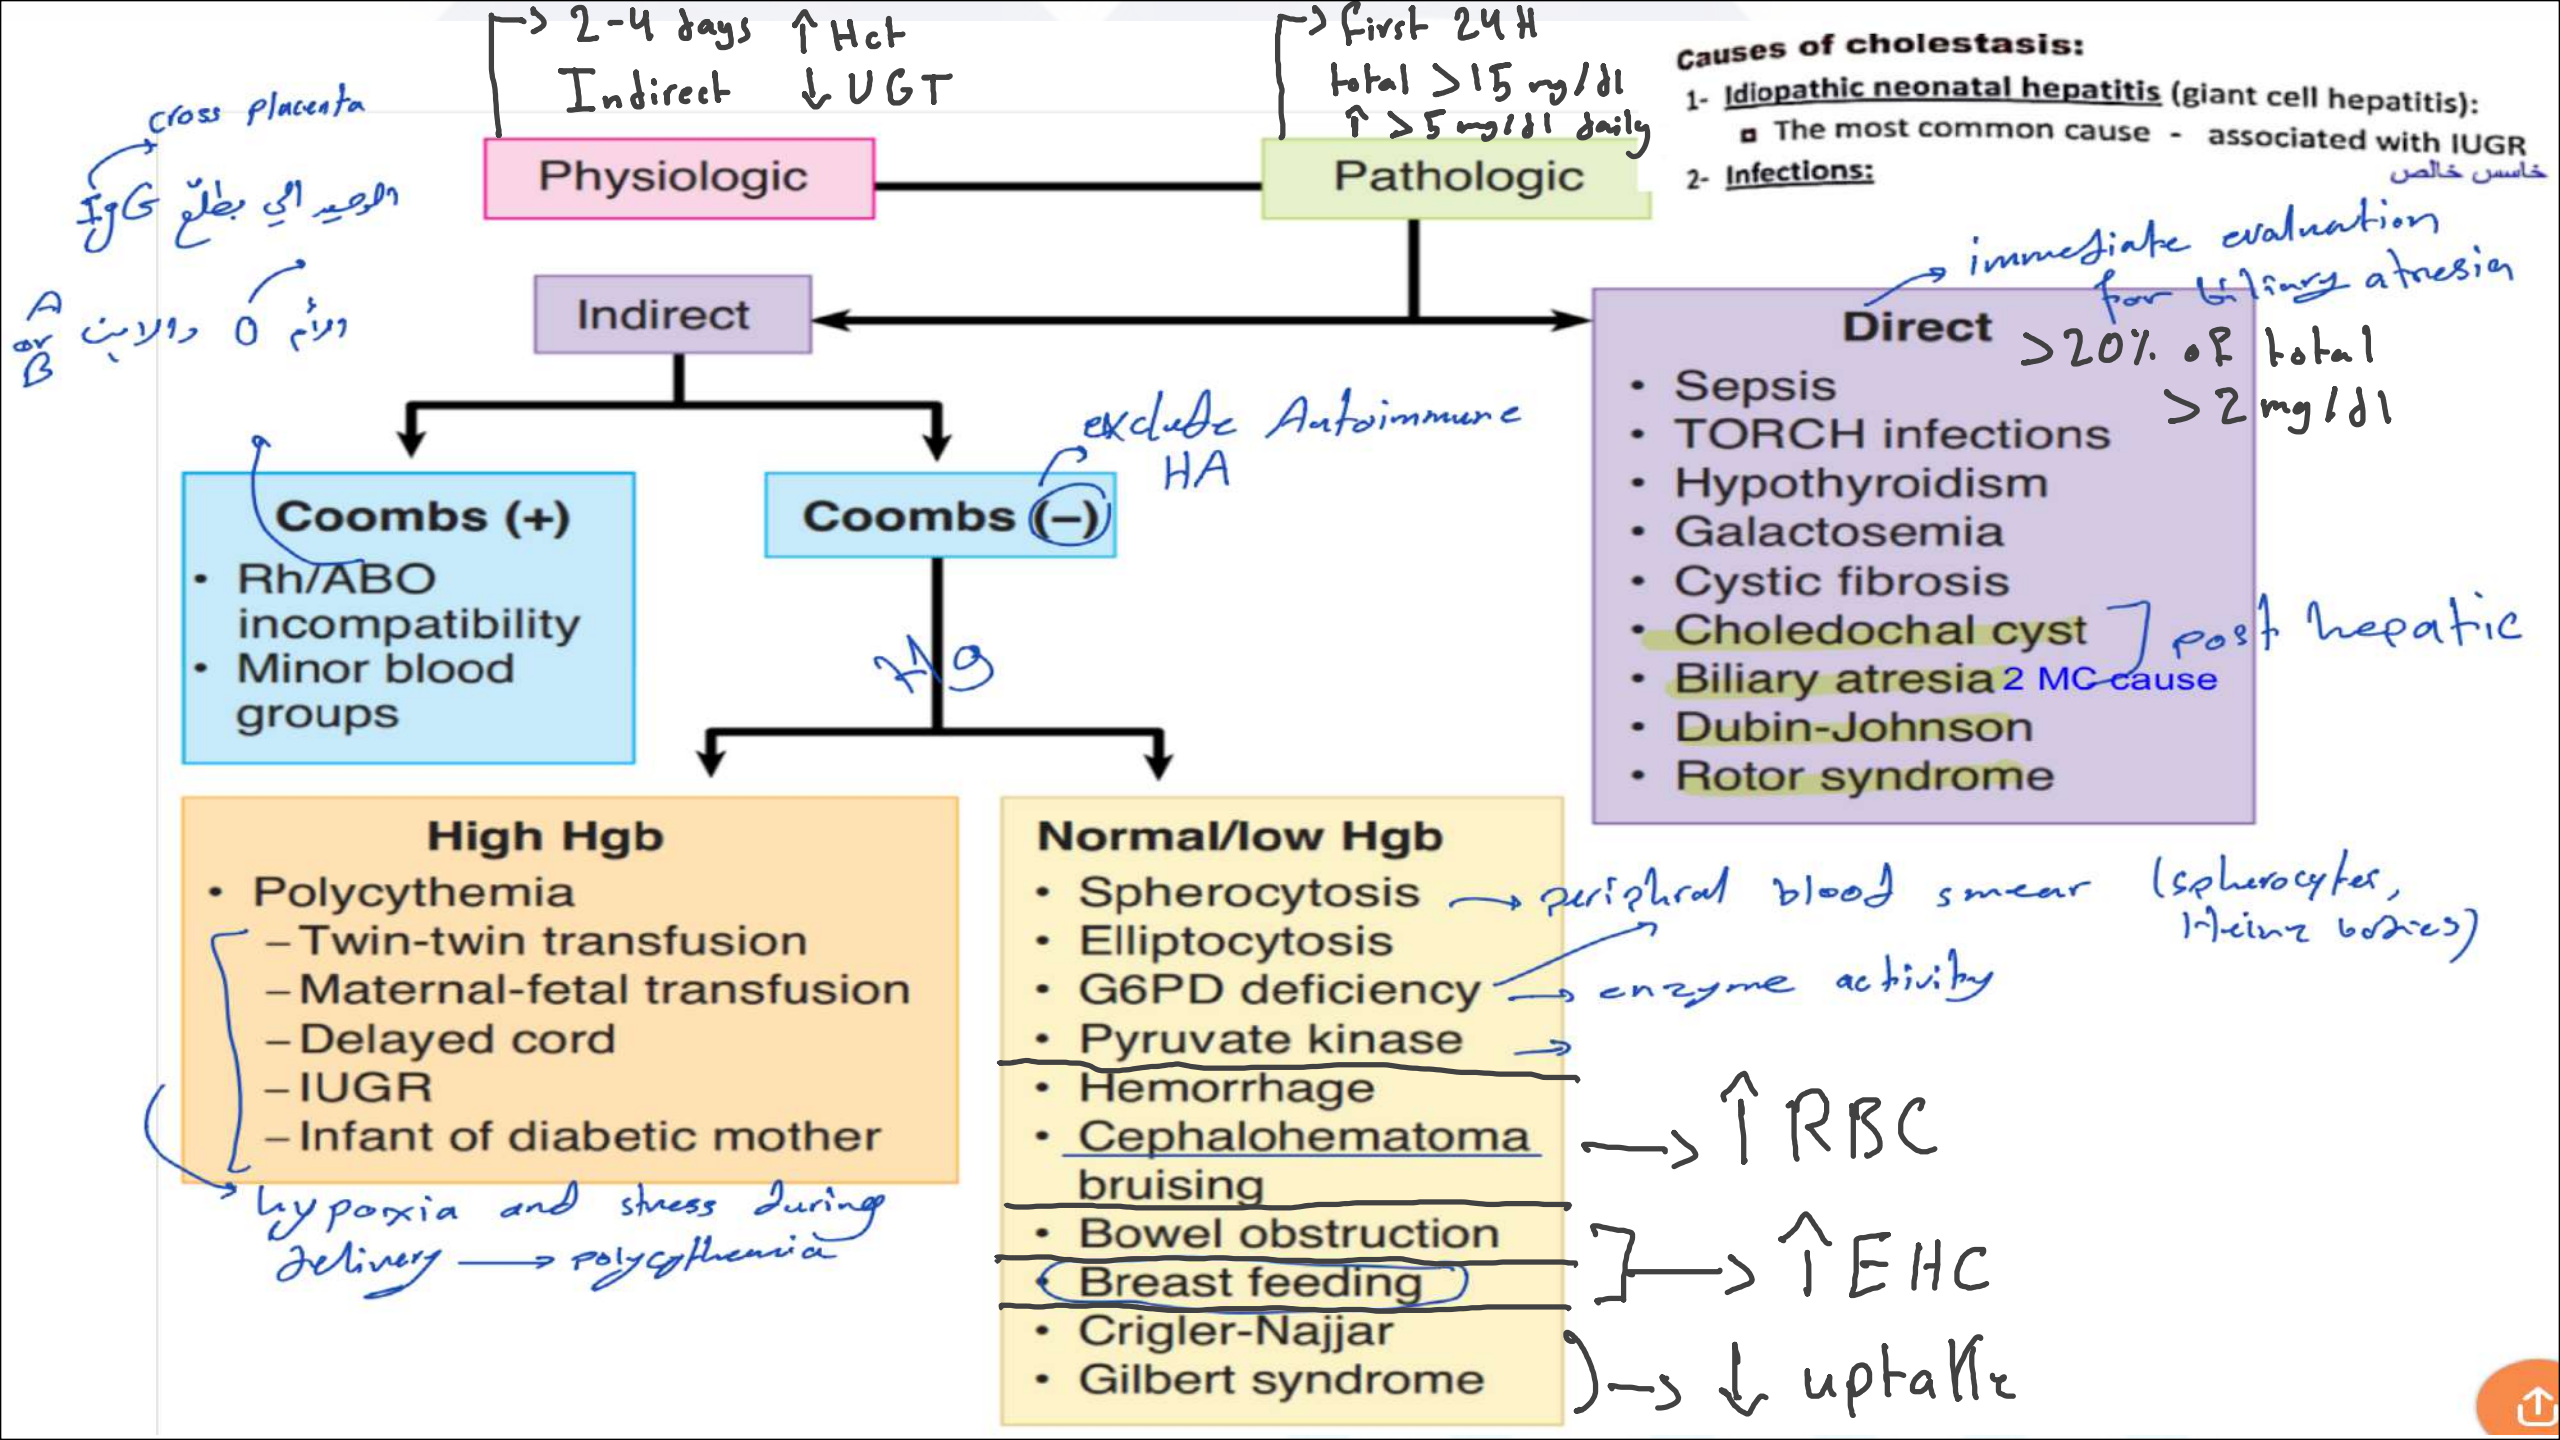 2-4 days ↑ Hct
Indirect ↓ UGT
First 24 H
total >15 mg/dl
↑ >5 mg/dl daily
Causes of cholestasis:
1- Idiopathic neonatal hepatitis (giant cell hepatitis):
The most common cause - associated with IUGR
2- Infections:
خاسس خالص
cross placenta
IgG الوحيد الي بطلّع
الأم O والابن A or B
Physiologic
Pathologic
Indirect
immediate evaluation
for biliary atresia
Direct
>20% of total
>2 mg/dl
• Sepsis
• TORCH infections
• Hypothyroidism
• Galactosemia
• Cystic fibrosis
• Choledochal cyst
• Biliary atresia 2 MC cause
post hepatic
• Dubin-Johnson
• Rotor syndrome
exclude Autoimmune
HA
Coombs (+)
• Rh/ABO
incompatibility
• Minor blood
groups
Coombs (–)
Hg
High Hgb
• Polycythemia
– Twin-twin transfusion
– Maternal-fetal transfusion
– Delayed cord
– IUGR
– Infant of diabetic mother
hypoxia and stress during
delivery → polycythemia
Normal/low Hgb
• Spherocytosis → periphral blood smear (spherocytes,
Heinz bodies)
• Elliptocytosis
• G6PD deficiency → enzyme activity
• Pyruvate kinase →
• Hemorrhage
• Cephalohematoma
bruising
→ ↑ RBC
• Bowel obstruction
• Breast feeding
→ ↑ EHC
• Crigler-Najjar
• Gilbert syndrome
→ ↓ uptake